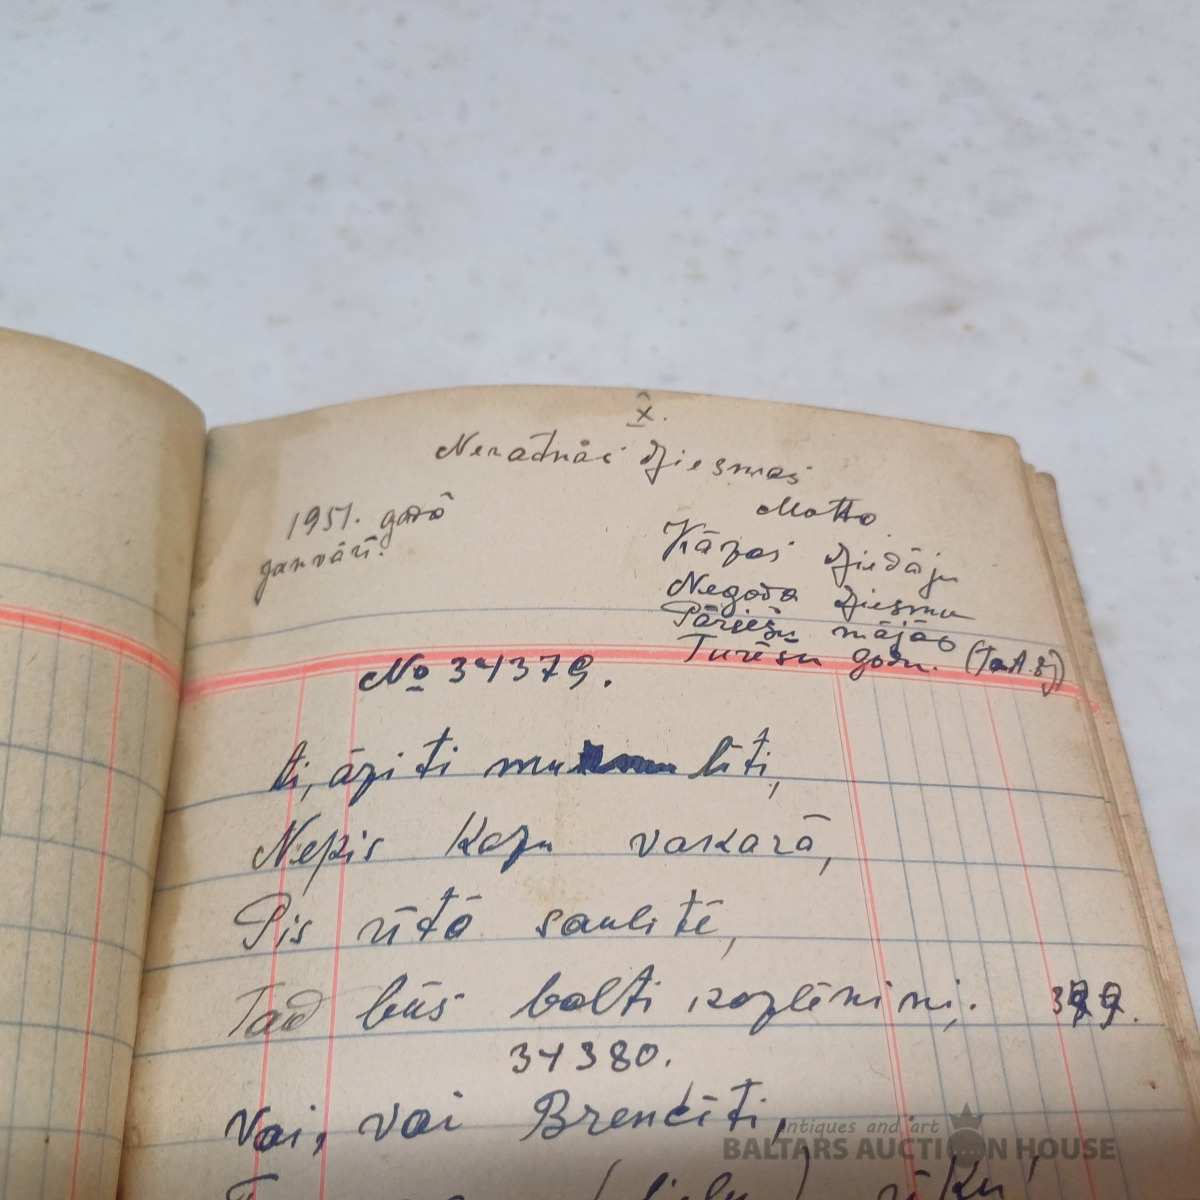 X.
Nerātnās dziesmas
1951. gadā
janvārī.
Motto
Kāzas dziedāju
Negoda dziesmu
Pāriešu mājās
Turēšu godu.
No 34379.
āziti
Nepis kazu vakarā,
Pis rītā saulītē,
Tad būs balti kazlēniņi,
34380.
Vai, vai Brencīti,
Antiques and art
BALTARS AUCTION HOUSE